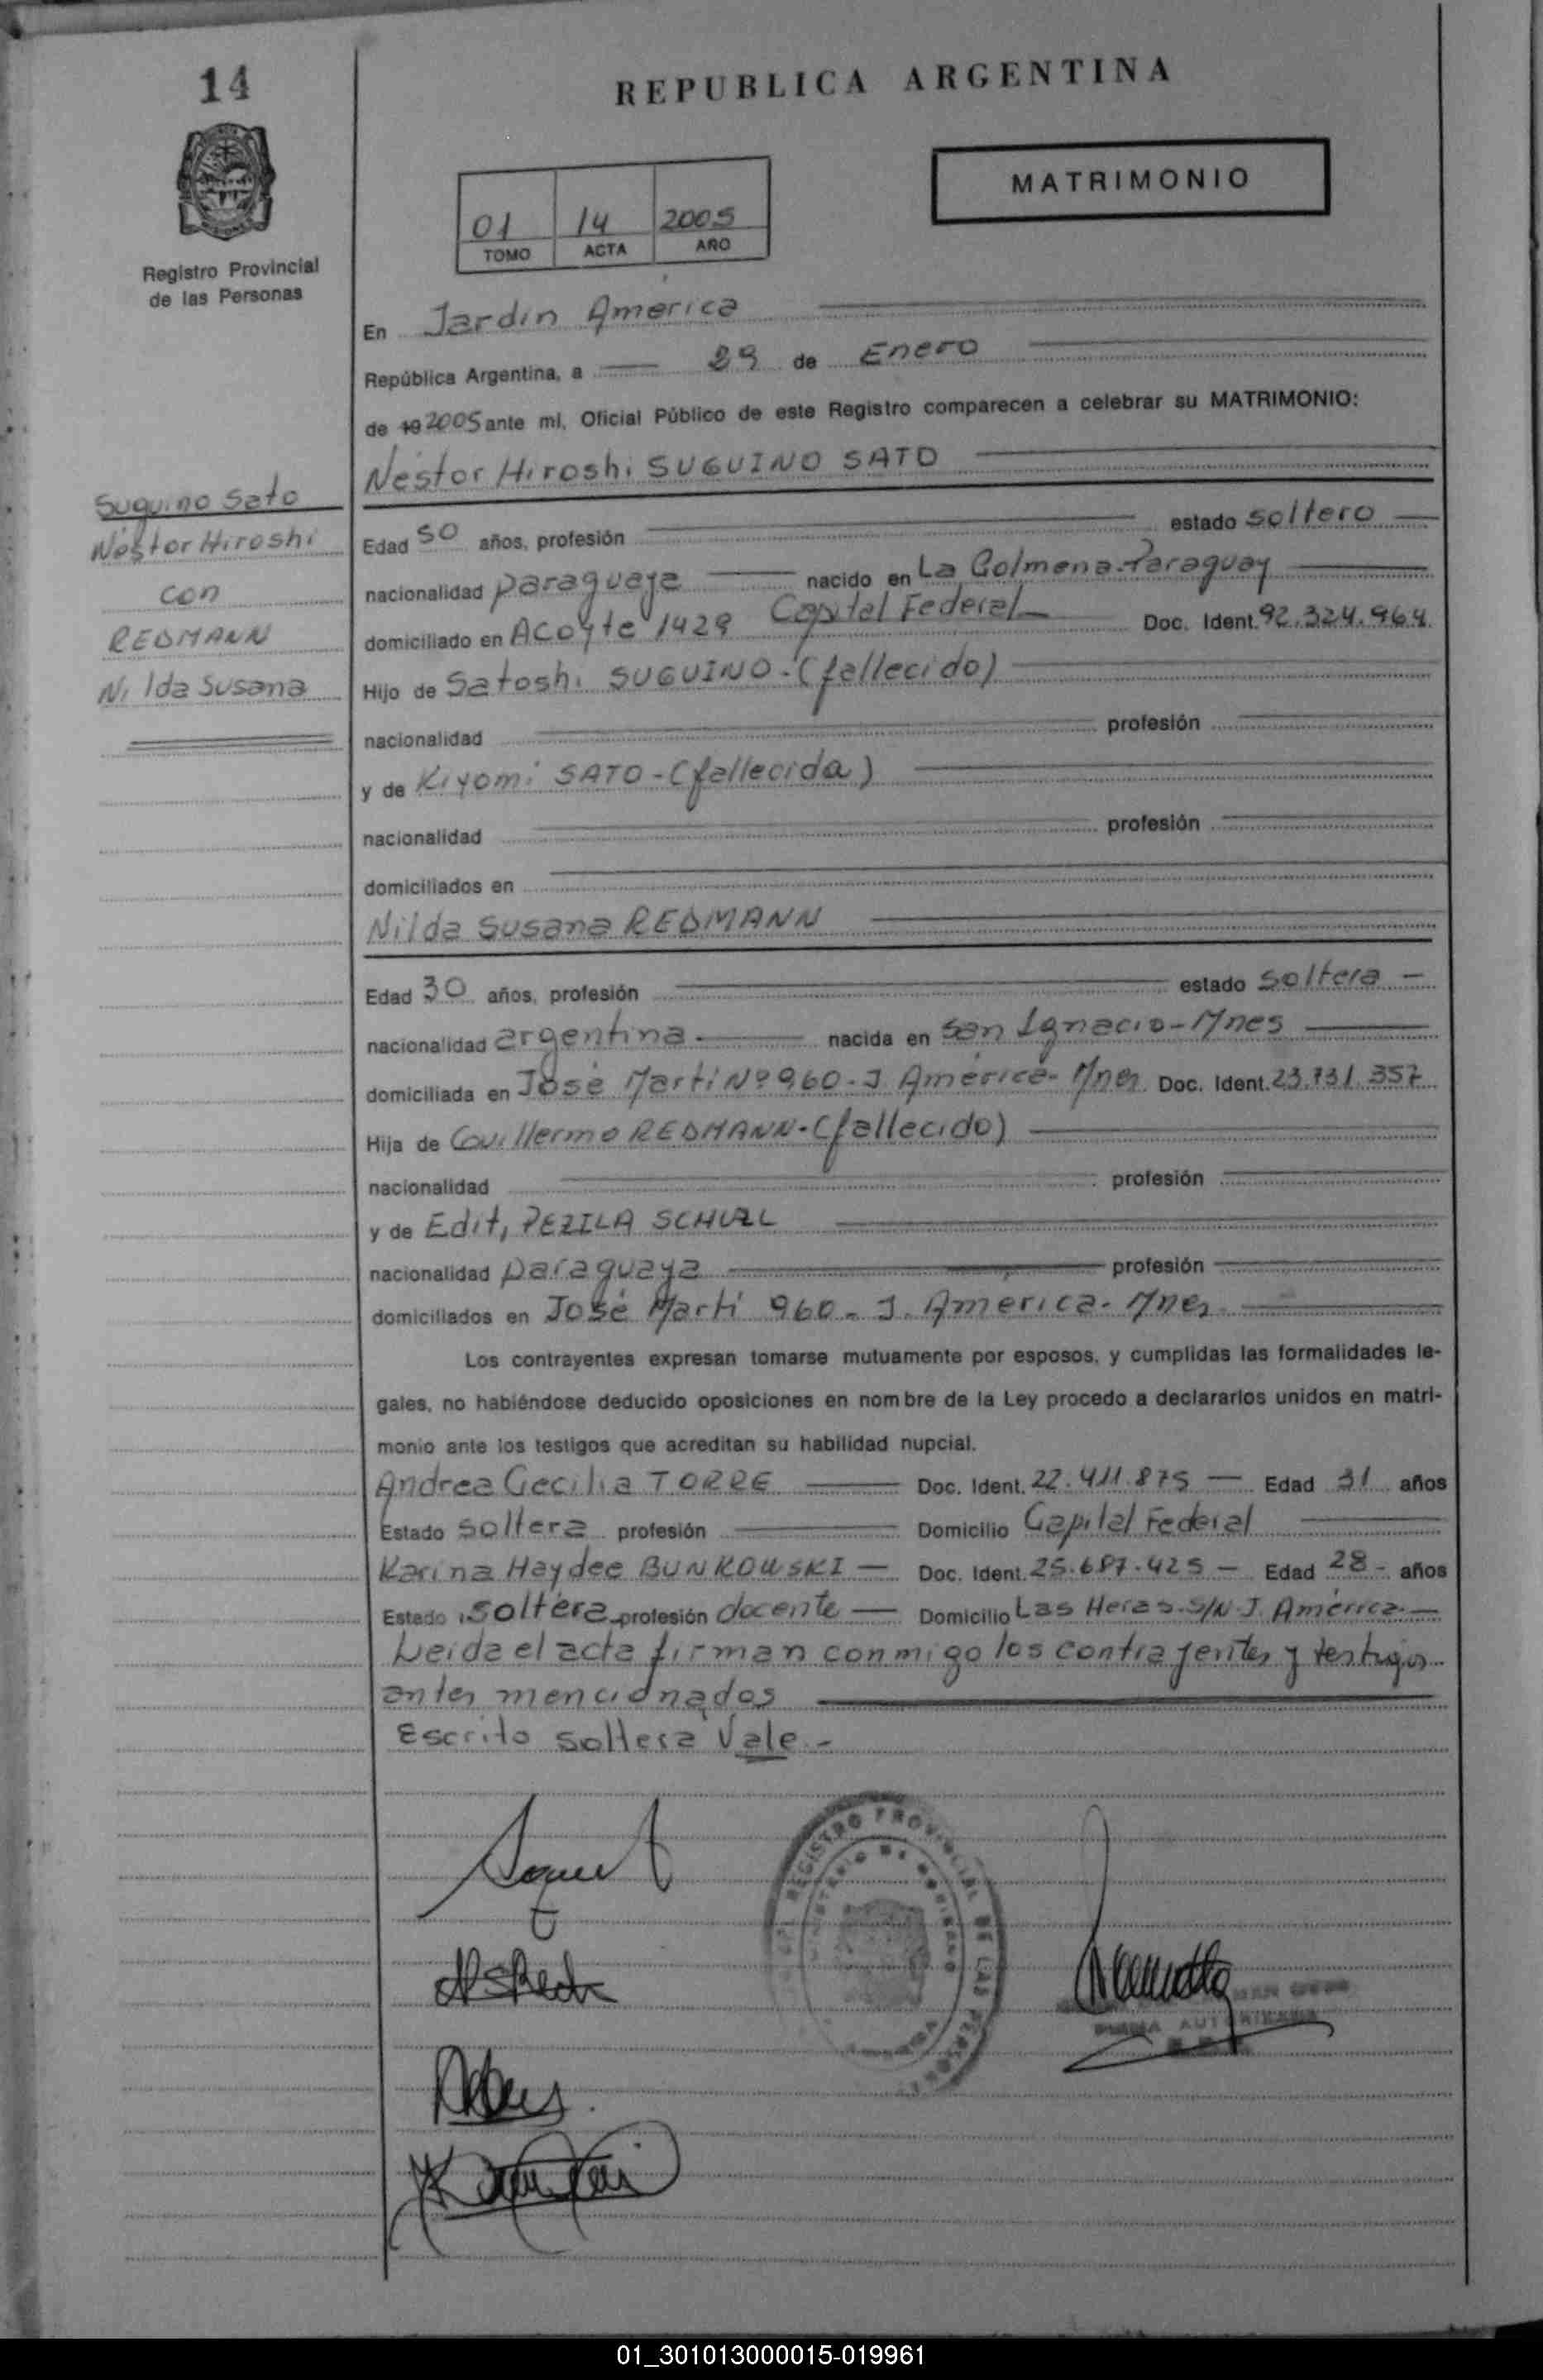 14
REPUBLICA ARGENTINA
MATRIMONIO
01 14 2005
TOMO ACTA AÑO
Registro Provincial
de las Personas
En Jardín América
República Argentina, a 29 de Enero
de 19 2005 ante mí, Oficial Público de este Registro comparecen a celebrar su MATRIMONIO:
Néstor Hiroshi SUGUINO SATO
Suguino Sato
Néstor Hiroshi
con
REDMANN
Nilda Susana
Edad 50 años, profesión estado soltero
nacionalidad paraguaya nacido en La Colmena-Paraguay
domiciliado en Acoyte 1429 Capital Federal Doc. Ident. 92.324.964
Hijo de Satoshi SUGUINO-(fallecido)
nacionalidad profesión
y de Kiyomi SATO-(fallecida)
nacionalidad profesión
domiciliados en
Nilda Susana REDMANN
Edad 30 años, profesión estado soltera
nacionalidad argentina nacida en San Ignacio-Mnes
domiciliada en José Martí Nº 960-J. América-Mnes Doc. Ident. 23.731.357
Hija de Guillermo REDMANN-(fallecido)
nacionalidad profesión
y de Edit, PEZILA
nacionalidad paraguaya profesión
domiciliados en José Martí 960-J. América-Mnes
Los contrayentes expresan tomarse mutuamente por esposos, y cumplidas las formalidades le-
gales, no habiéndose deducido oposiciones en nombre de la Ley procedo a declararlos unidos en matri-
monio ante los testigos que acreditan su habilidad nupcial.
Andrea Cecilia TORRE Doc. Ident. 22.411.875 Edad 31 años
Estado soltera profesión Domicilio Capital Federal
Karina Haydee BUNKOWSKI Doc. Ident. 25.687.425 Edad 28 años
Estado soltera profesión docente Domicilio Las Heras S/N J. América
Leida el acta firman conmigo los contrayentes y testigos
antes mencionados
Escrito soltera Vale.-
REGISTRO PROVINCIAL DE LAS PERSONAS
FIRMA AUTORIZADA
01_301013000015-019961